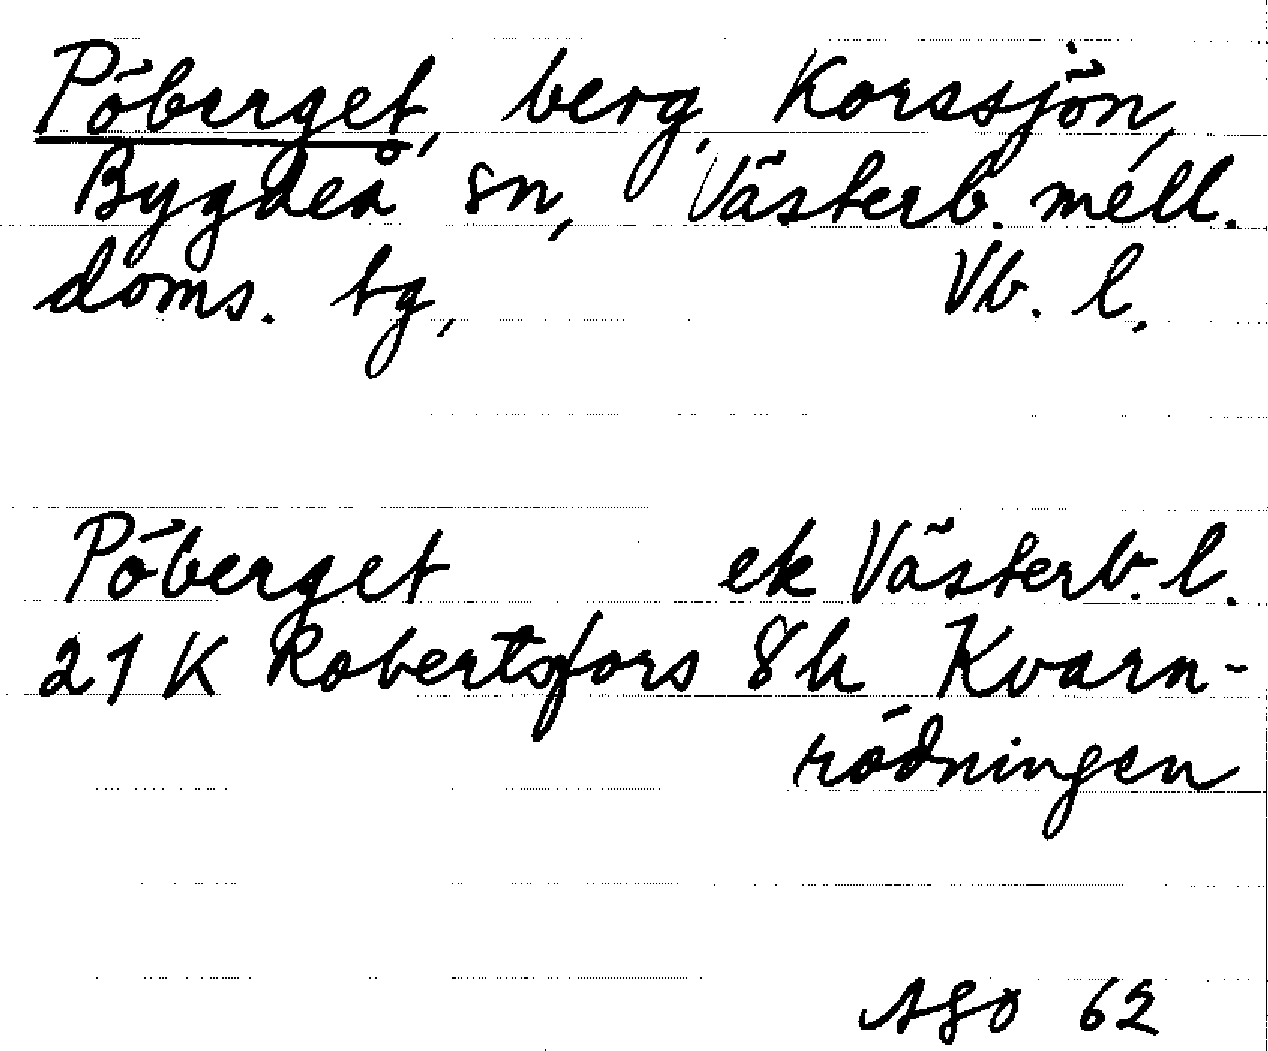 Pöberget, berg, Korssjön,
Bygdeå sn, Västerb. mell.
doms. bg, Vb. l.
Pöberget ek Västerb. l.
21 K Robertsfors 8 h Kvarn-
rödningen
ÅGO 62